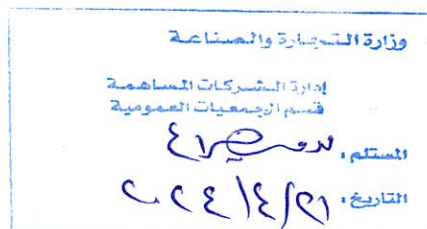 وزارة التجارة والصناعة
إدارة الشركات المساهمة
قسم الجمعيات العمومية
المستلم :
التاريخ : ٢٠٢٤/٤/٢١